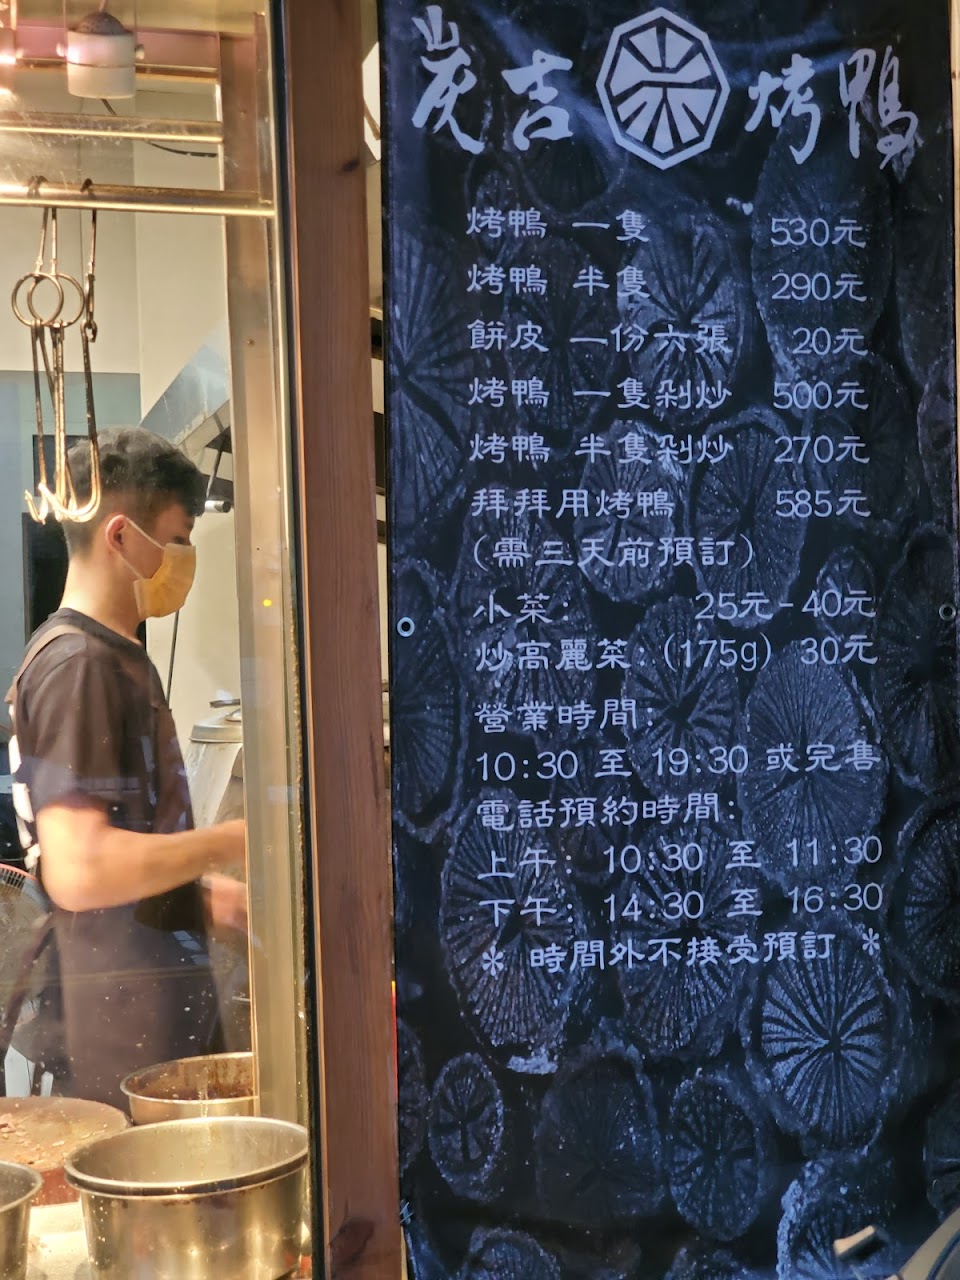 炭吉 烤鴨
烤鴨 一隻 530元
烤鴨 半隻 290元
餅皮 一份六張 20元
烤鴨 一隻剁炒 500元
烤鴨 半隻剁炒 270元
拜拜用烤鴨 585元
(需三天前預訂)
小菜: 25元-40元
炒高麗菜:(175g) 30元
營業時間:
10:30 至 19:30 或完售
電話預約時間:
上午: 10:30 至 11:30
下午: 14:30 至 16:30
* 時間外不接受預訂 *